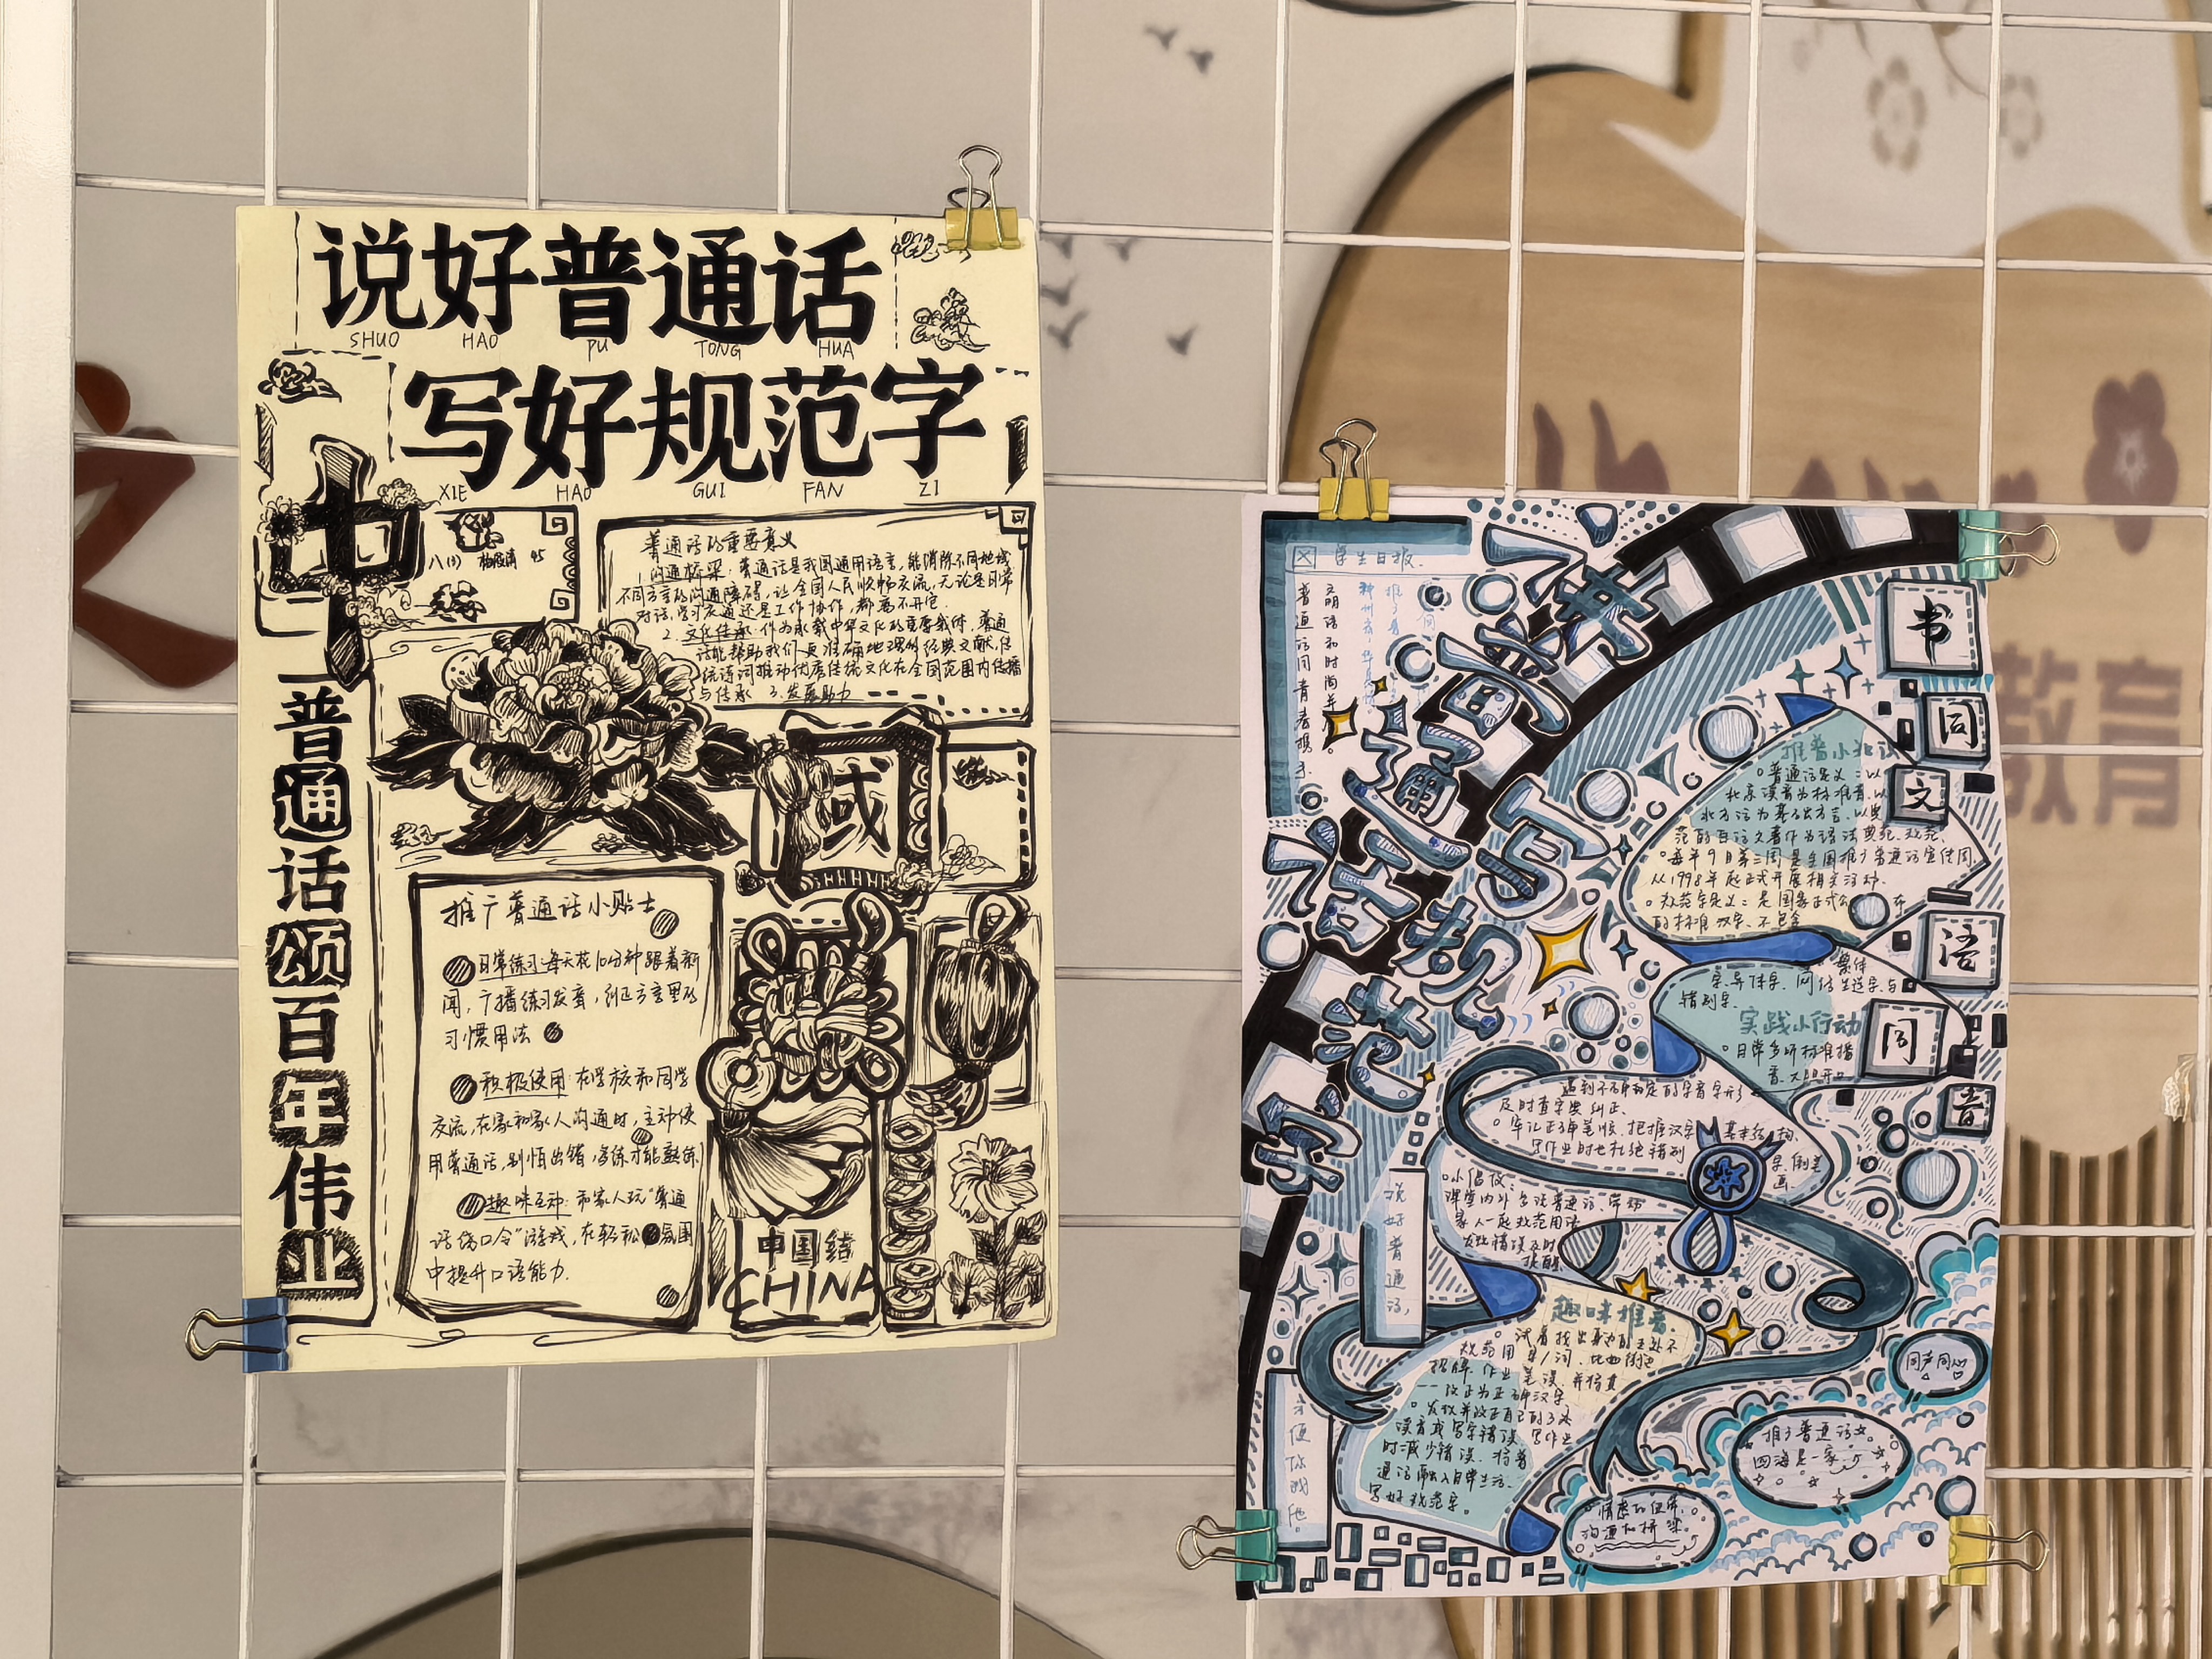 说好普通话
SHUO HAO PU TONG HUA
写好规范字
XIE HAO GUI FAN ZI
中
八(3) 45
普通话的重要意义
1.沟通桥梁:普通话是我国通用语言,能消除不同地域
不同方言的沟通障碍,让全国人民顺畅交流,无论是日常
对话、学习交通还是工作协作,都离不开它.
2.文化传承:作为承载中华文化的重要载体,普通
话能帮助我们更准确地理解经典文献,传
统诗词推动优秀传统文化在全国范围内传播
与传承 3.发展助力
国
域
普通话颂百年伟业
推广普通话小贴士
日常练习:每天花10分钟跟着新
闻,广播练习发音,纠正方言里的
习惯用法
积极使用:在学校和同学
交流,在家和家人沟通时,主动使
用普通话,别怕出错,多练才能熟练
趣味互动:和家人玩“普通
话绕口令”游戏,在轻松氛围
中提升口语能力.
中国结
CHINA
学生日报.
普通话同青春携手.
文明语和时尚并
讲普通话写规范字
书同文语同音
推普小知识
普通话定义:以
北京语音为标准音、以
北方话为基础方言、以典
范的白话文著作为语法规范.
每年9月第三周是全国推广普通话宣传周.
从1998年起正式开展相关活动.
规范字定义:是国家正式公布
的标准汉字、不包含繁体
字、异体字、网络生造字与
错别字.
实践小行动
日常多听标准播
音、大胆开口
遇到不确定的字音字形
及时查字典纠正.
牢记正确笔顺、把握汉字基本结构.
写作业时也杜绝错别
小倡仪:
课堂内外多说普通话、带动
家人一起规范用语
发现错误及时
提醒
说好普通话,
方便你我他。
趣味推普.
试着找出身边的五处不
规范用字/词、比如街边
招牌、作业笔误、并将其
一一改正为正确汉字
发现并改正自己的3次
读音或写字错误、写作业
时减少错误、将普
通话融入日常生活.
写好规范字。
同声同心
推广普通话
四海是一家
情感的纽带,
沟通的桥梁。
教育